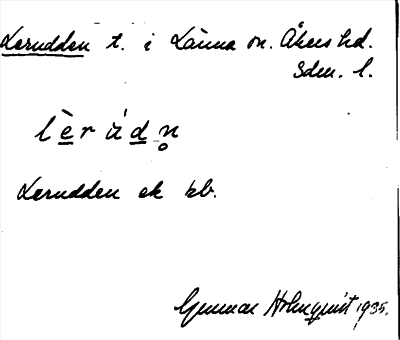 Lerudden t. i Länna sn. Åkers hd.
Sdm. l.
lèrúdn̥
Lerudden ek kb.
Gunnar Holmqvist 1935.